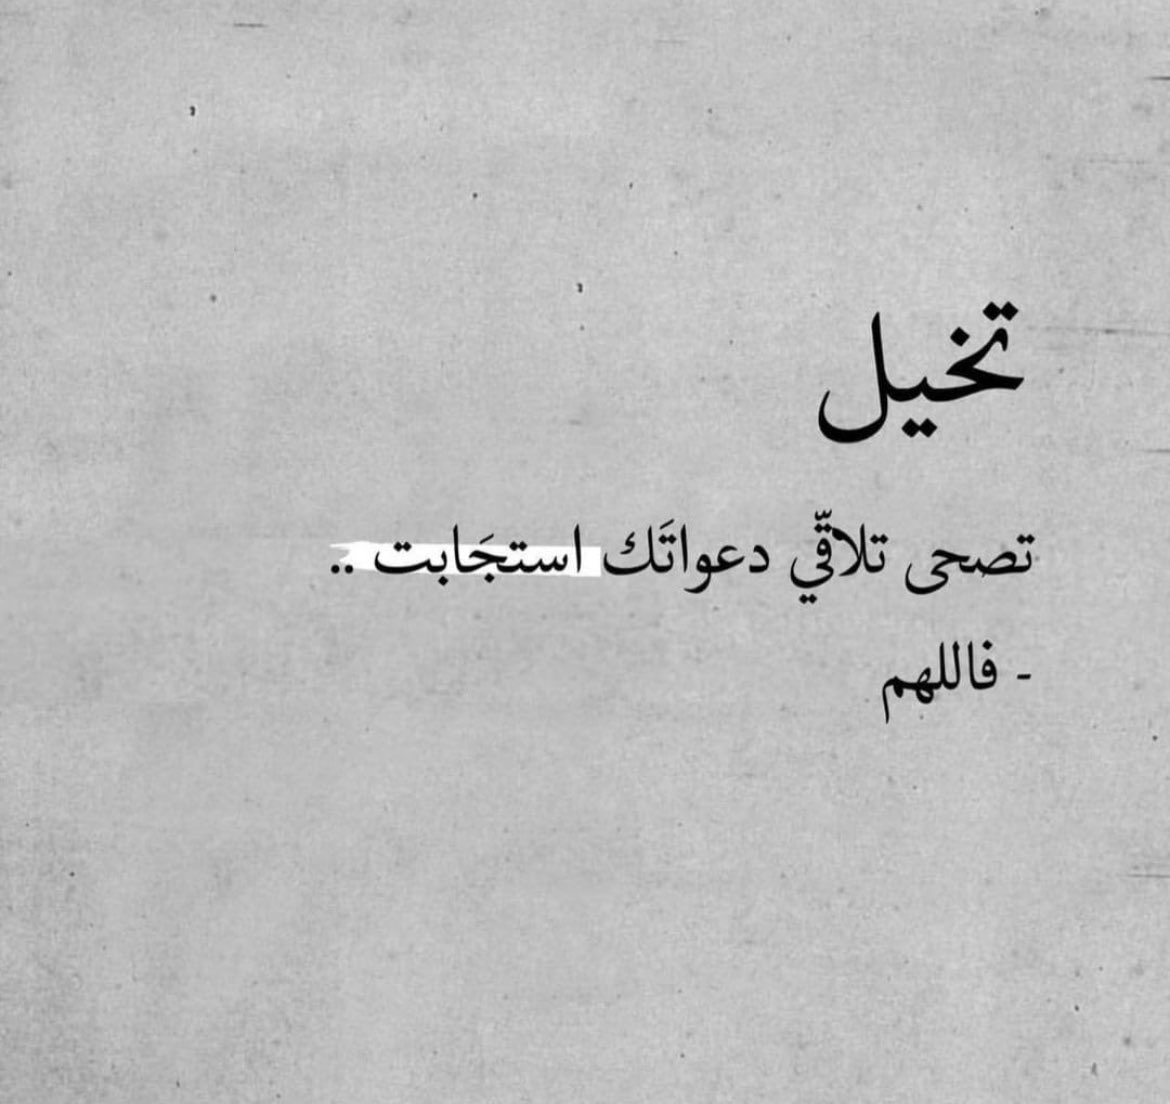 تخيل
تصحى تلاقّي دعواتَك استجَابت ..
- فاللهم